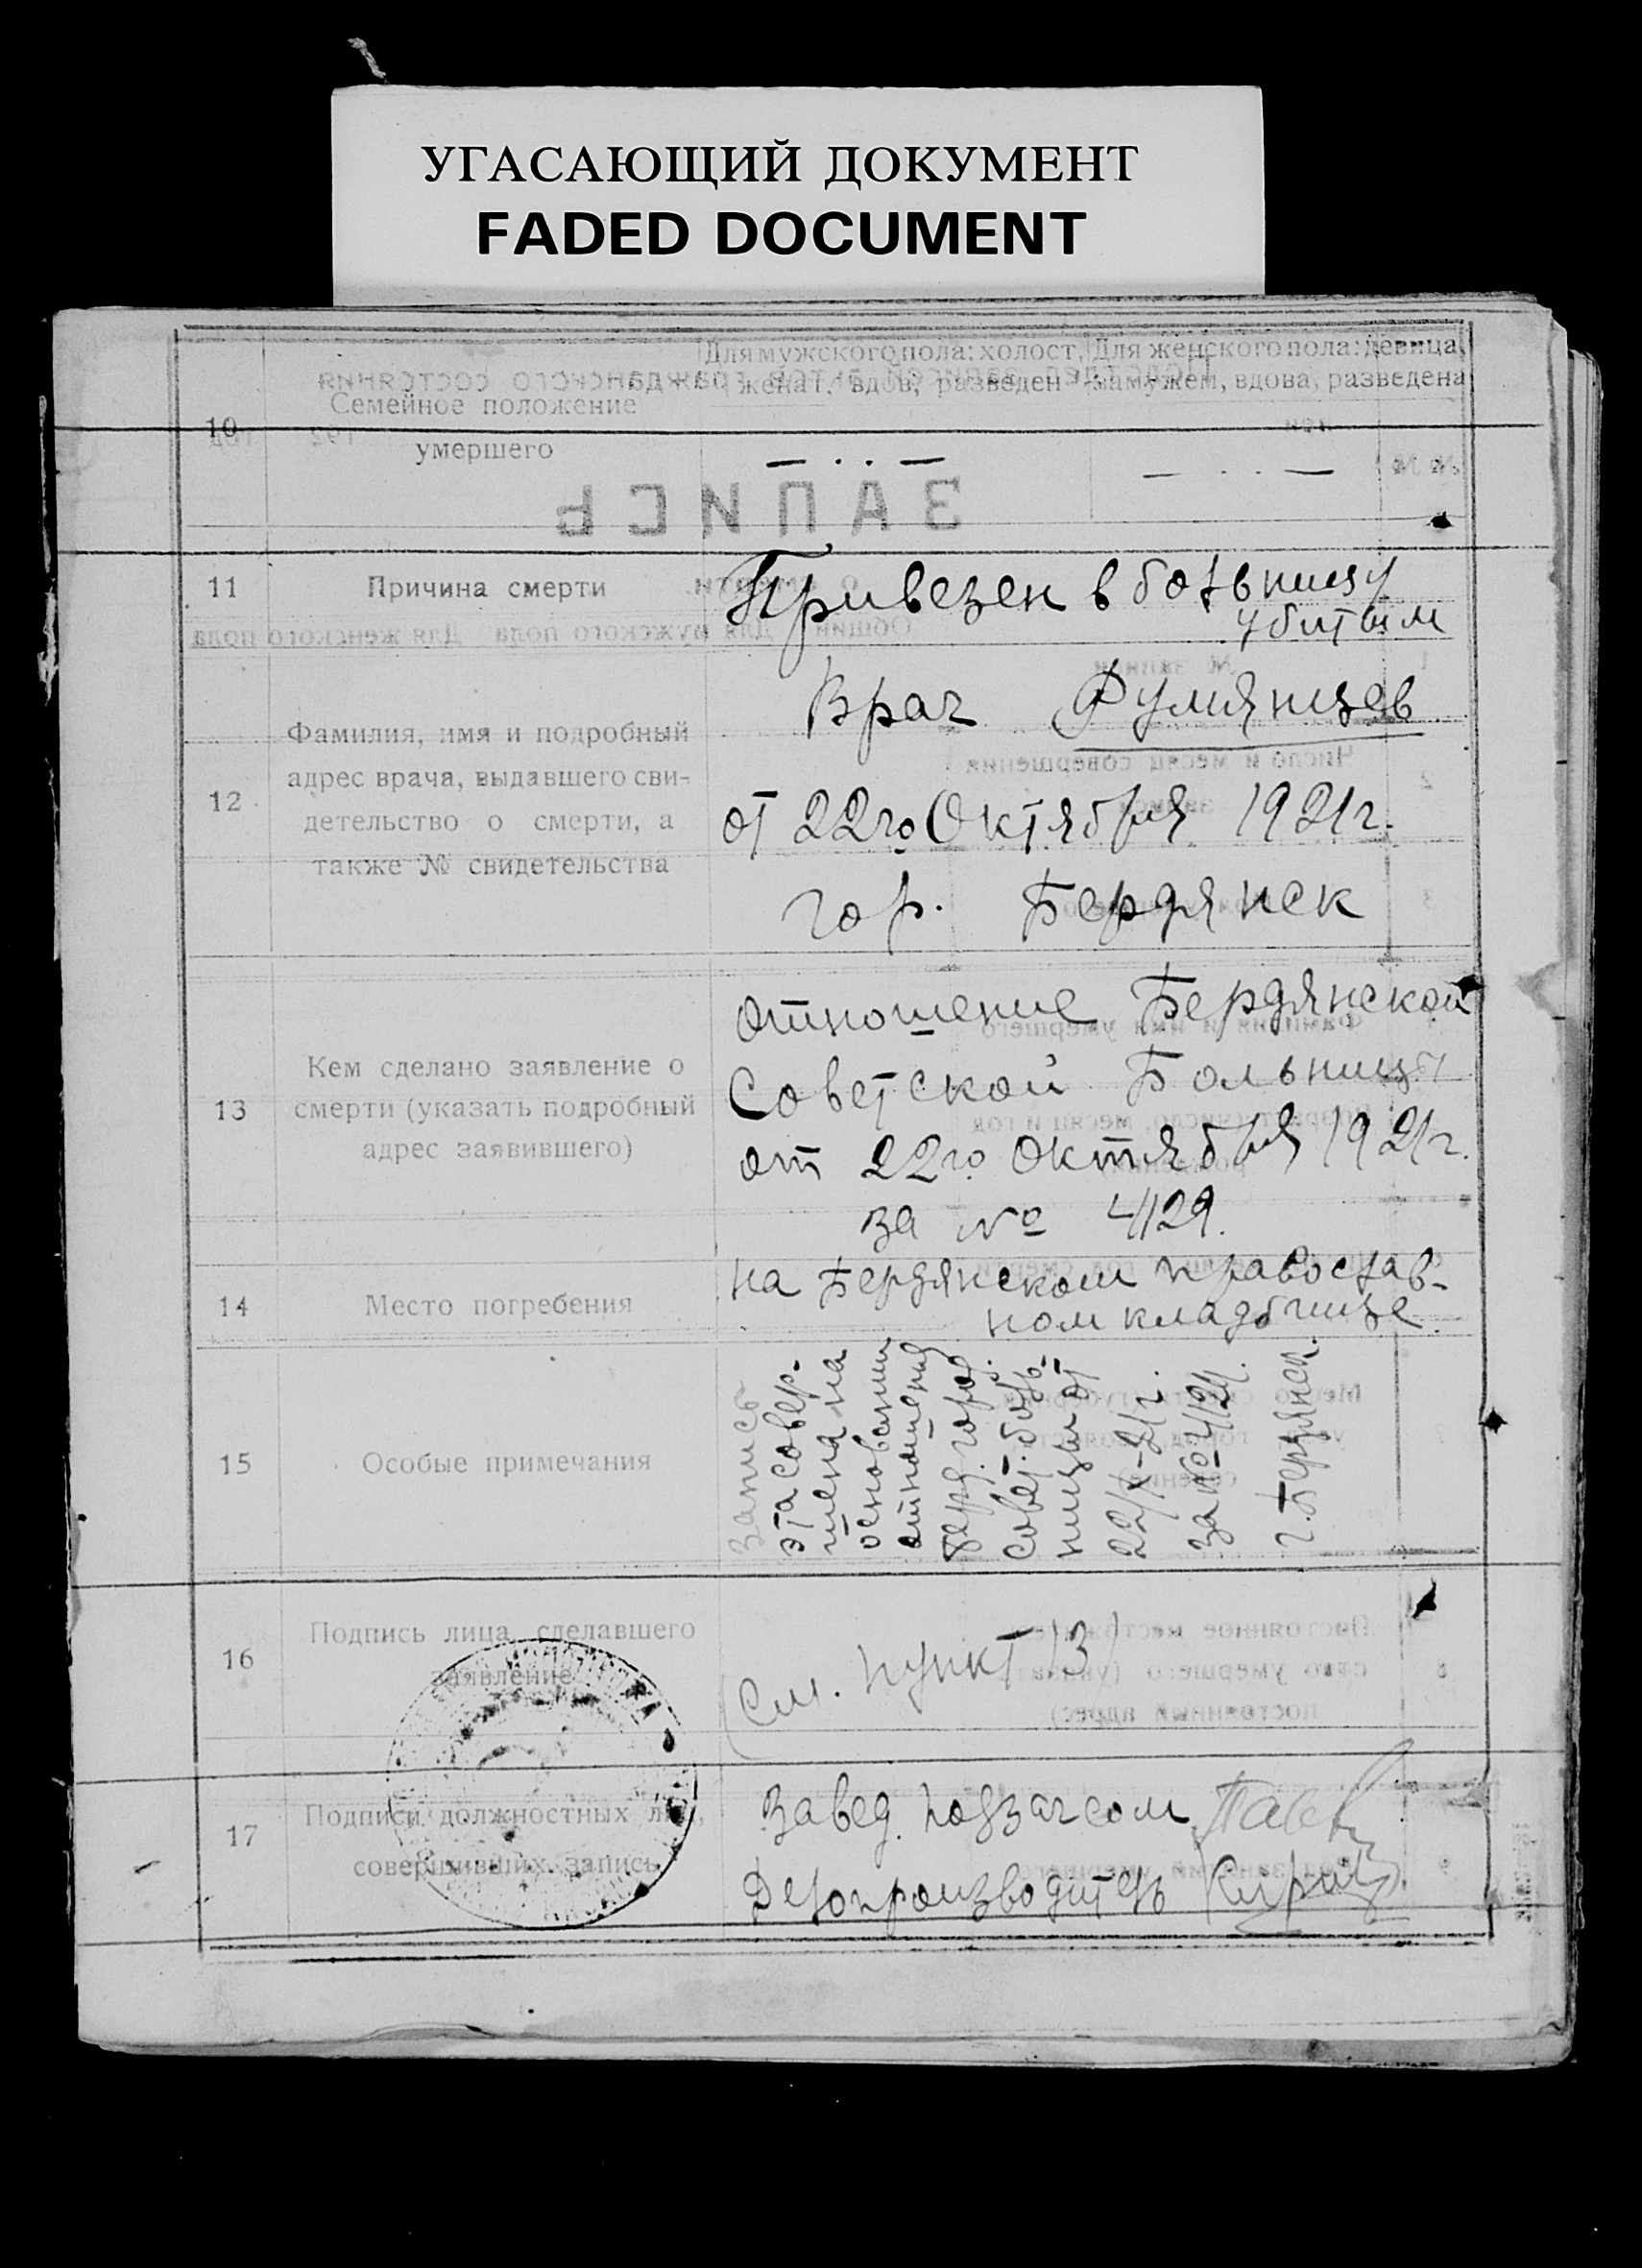 УГАСАЮЩИЙ ДОКУМЕНТ
FADED DOCUMENT
10
Семейное положение
умершего
Для мужского пола: холост,
женат, вдов, разведен
Для женского пола: девица,
замужем, вдова, разведена
— . . —
— . . —
11
Причина смерти
Привезен в больницу
убитым
12
Фамилия, имя и подробный
адрес врача, выдавшего сви-
детельство о смерти, а
также № свидетельства
Врач Румянцев
от 22го Октября 1921г.
гор. Бердянск
13
Кем сделано заявление о
смерти (указать подробный
адрес заявившего)
Отношение Бердянской
Советской Больницы
от 22го Октября 1921г.
за № 4129.
14
Место погребения
на Бердянском православ-
ном кладбище.
15
Особые примечания
Запись
эта совер-
шена на
основании
отношения
Берд. город.
Совет. боль-
ницы от
22/X-21г.
за № 4129.
г. Бердянск.
16
Подпись лица, сделавшего
заявление
См. пункт 13
17
Подписи должностных лиц,
совершивших запись
Завед. подзагсом
Делопроизводитель